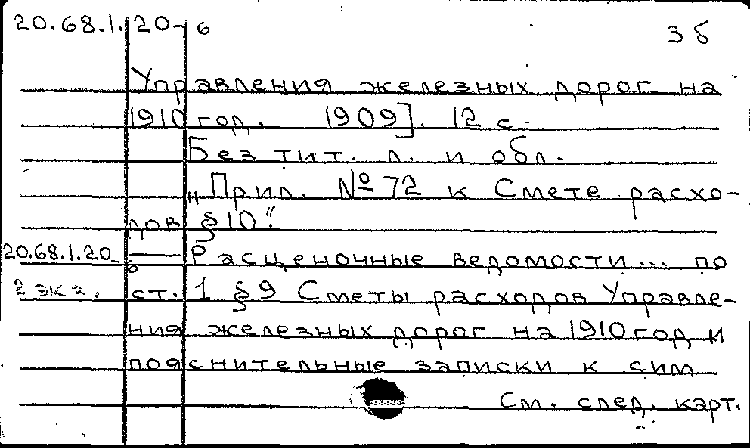 20.68.1.20-6 3б
Управления железных дорог на
1910 год. 1909]. 12 с.
Без тит. л. и обл.
"Прил. № 72 к Смете расхо-
дов § 10."
20.68.1.20-6 — Расценочные ведомости... по
2 экз. ст. 1 § 9 Сметы расходов Управле-
ния железных дорог на 1910 год и
пояснительные записки к сим
См. след. карт.